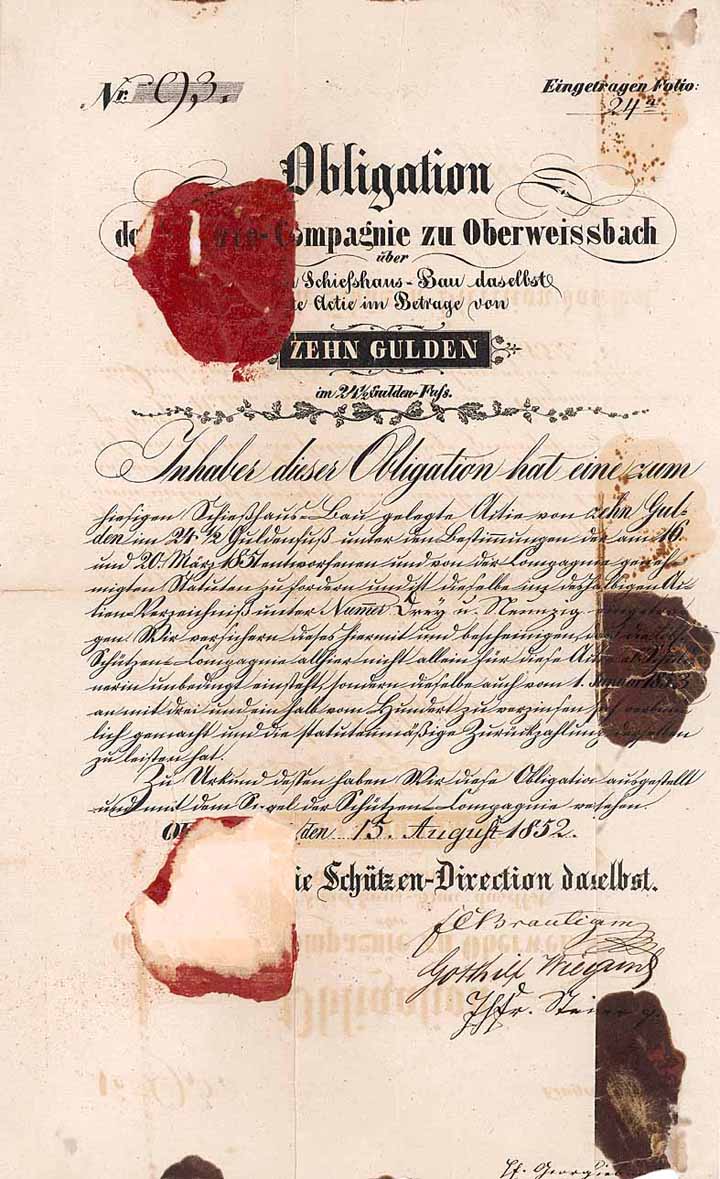 Nr. 93.
Eingetragen Folio:
24
Obligation
Compagnie zu Oberweissbach
über
Schiefshaus-Bau daselbst
Actie im Betrage von
ZEHN GULDEN
im 24½ Gulden-Fuss.
Inhaber dieser Obligation hat eine zum
hiesigen Schießhaus-Bau gelegte Actie von zehn Gul-
den im 24½ Guldenfuß unter den Bestimmungen der am 16.
und 20. März 1851 entworfenen und von der Compagnie geneh-
migten Statuten zu fordern und ist dieselbe im desfallsigen Ac-
tien-Verzeichniß unter Numer Drey u. Neunzig eingetra-
gen. Wir versichern dieses hiermit und bescheinigen, daß die
Schützen-Compagnie allhier nicht allein für diese Actie als Schuld-
nerin unbedingt einsteht, sondern dieselbe auch vom 1. Januar 1853
an mit drei und ein halb vom Hundert zu verzinsen sich verbind-
lich gemacht und die statutenmäßige Zurückzahlung derselben
zu leisten hat.
Zu Urkund dessen haben Wir diese Obligation ausgestellt
und mit dem Siegel der Schützen-Compagnie versehen.
den 15. August 1852.
ie Schützen-Direction daselbst.
Gotthilf Wiegand